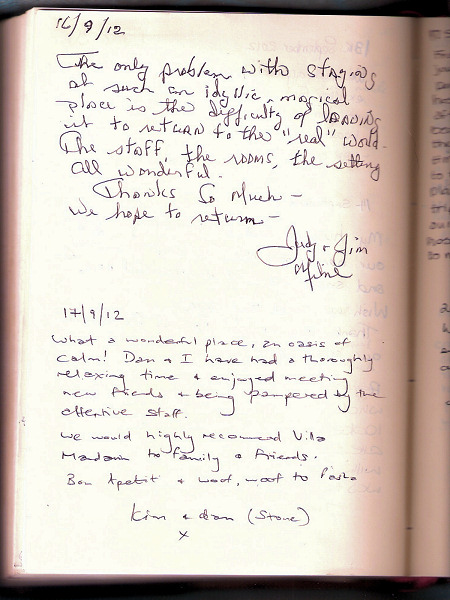 16/9/12
The only problem with staying
at such an idyllic, magical
place is the difficulty of leaving
it to return to the "real" world.
The staff, the rooms, the setting
all wonderful.
Thanks so much –
We hope to return –
Judy + Jim
Milne
17/9/12
What a wonderful place, an oasis of
calm! Dan & I have had a thoroughly
relaxing time & enjoyed meeting
new friends & being pampered by the
attentive staff.
We would highly recommend Villa
to family & friends.
Bon Apetit & woof, woof to
Kim & Dan (Stone)
x